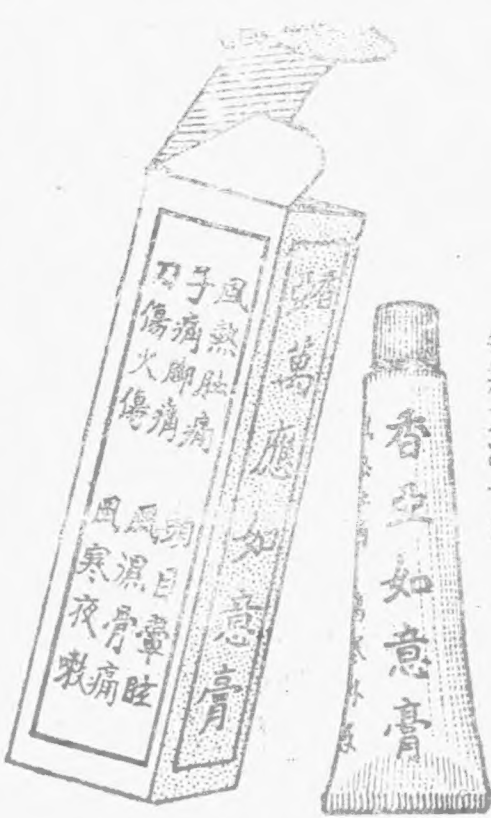 風熱肚痛
刀傷火傷
頭目暈眩
風濕骨痛
風寒夜嗽
萬應如意膏
香亞如意膏